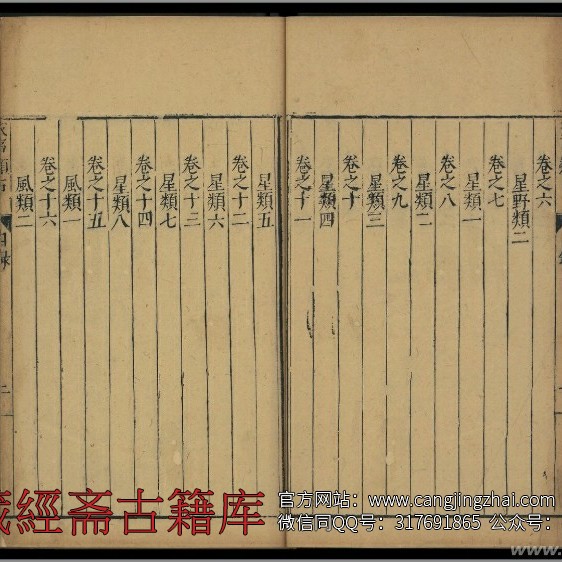 卷之六
星野類二
卷之七
星類一
卷之八
星類二
卷之九
星類三
卷之十
星類四
卷之十一
星類五
卷之十二
星類六
卷之十三
星類七
卷之十四
星類八
卷之十五
風類一
卷之十六
風類二
目錄
二
藏經斋古籍库
官方网站：www.cangjingzhai.com
微信同QQ号：317691865 公众号：
www.